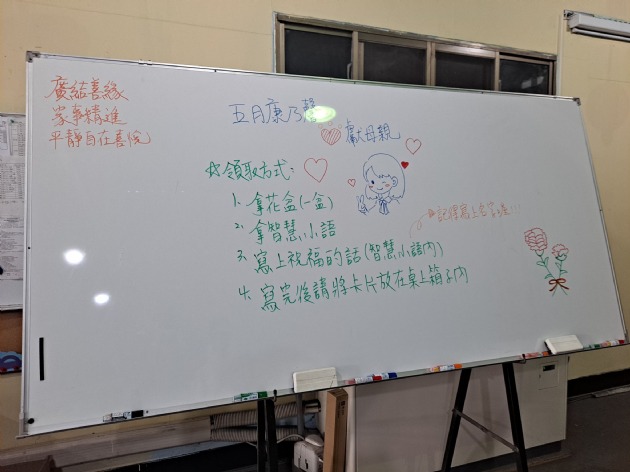 廣結善緣
家事精進
平靜自在喜悅
五月康乃馨
獻母親
☆領取方式:
1. 拿花盒(一盒)
2. 拿智慧小語
3. 寫上祝福的話(智慧小語內)
記得寫上名字喔!!!
4. 寫完後請將卡片放在桌上箱子內